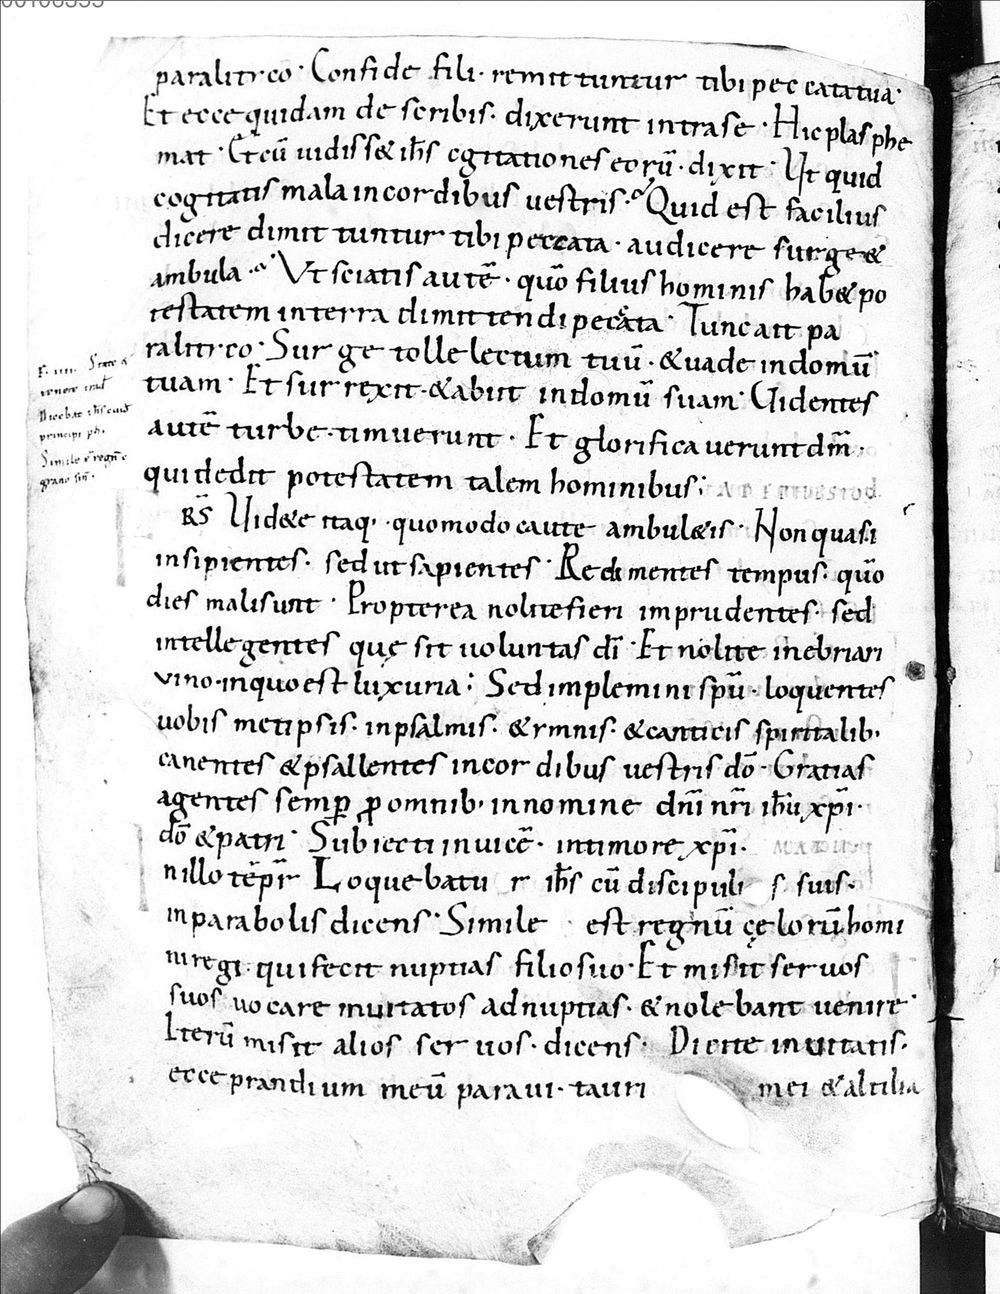 paralitico· Confide fili· remittuntur tibi peccata tua·
Et ecce quidam de scribis· dixerunt intra se· Hic plasphe
mat· Et cū uidiss& ihs̄ cgitationes eorū· dixit· Ut quid
cogitatis mala in cordibus uestris· Quid est facilius
dicere dimittuntur tibi peccata· au dicere surge &
ambula· Ut sciatis autē· quō filius hominis hab& po
testatem in terra dimittendi peccata· Tunc ait pa
ralitico· Surge tolle lectum tuū· & uade in domū
tuam· Et surrexit· & abiit in domū suam· Uidentes
autē turbe· timuerunt· Et glorificauerunt dm̄·
qui dedit potestatem talem hominibus;
RS̄ Uid&e itaq· quomodo caute ambul&is· Non quasi
insipientes· sed ut sapientes· Redimentes tempus· quō
dies mali sunt· Propterea nolite fieri imprudentes· sed
intellegentes quę sit uoluntas dī· Et nolite inebriari
vino· in quo est luxuria; Sed implemini spū· loquentes
uobis metipsis· in psalmis· & ymnis· & canticis spiritalib·
canentes & psallentes in cordibus uestris dō· Gratias
agentes semꝑ ꝓ omnib· in nomine dnī nrī ihū xpī·
dō & patri· Subiecti inuicē· in timore xpī·
n illo tēpr̄ Loquebatur ihs̄ cū discipulis suis·
in parabolis dicens· Simile est regnū cęlorū homi
ni regi· qui fecit nuptias filio suo· Et misit seruos
suos uocare inuitatos ad nuptias· & nolebant uenire·
Iterū misit alios seruos· dicens· Dicite inuitatis·
ecce prandium meū paraui· tauri mei & altilia
Dicebat ihs̄
principi
Simile ē regnū
grano sin̄·